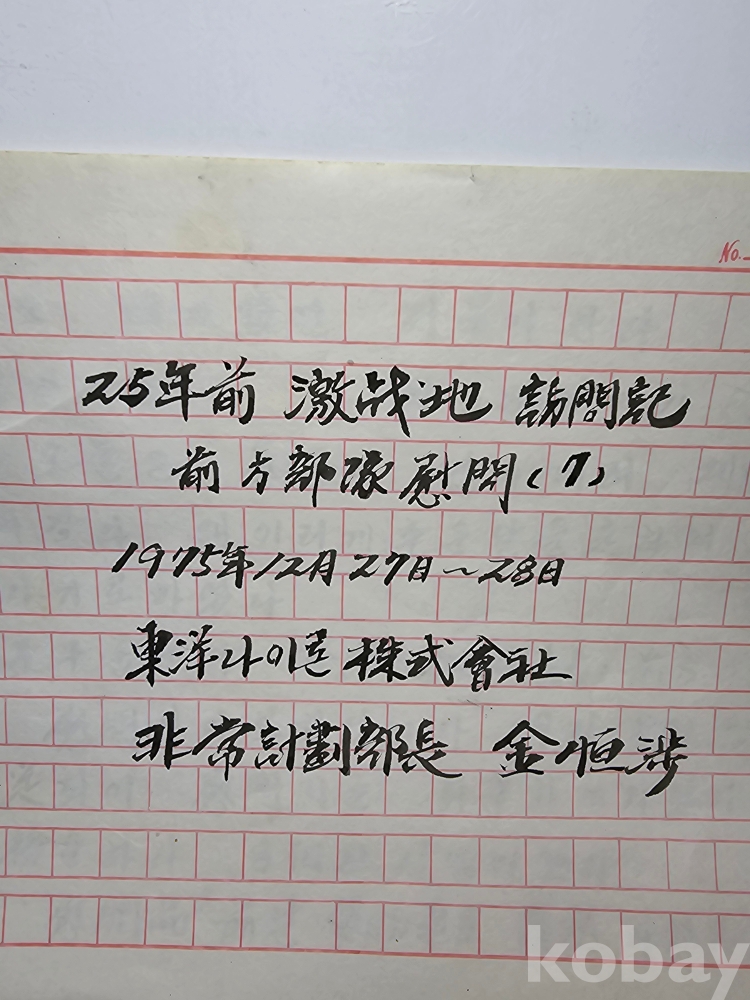 No.
25年前 激战地 訪問記
前方部隊 慰問(7)
1975年12月27日~28日
東洋나이론 株式會社
非常計劃部長 金恒涉
kobay